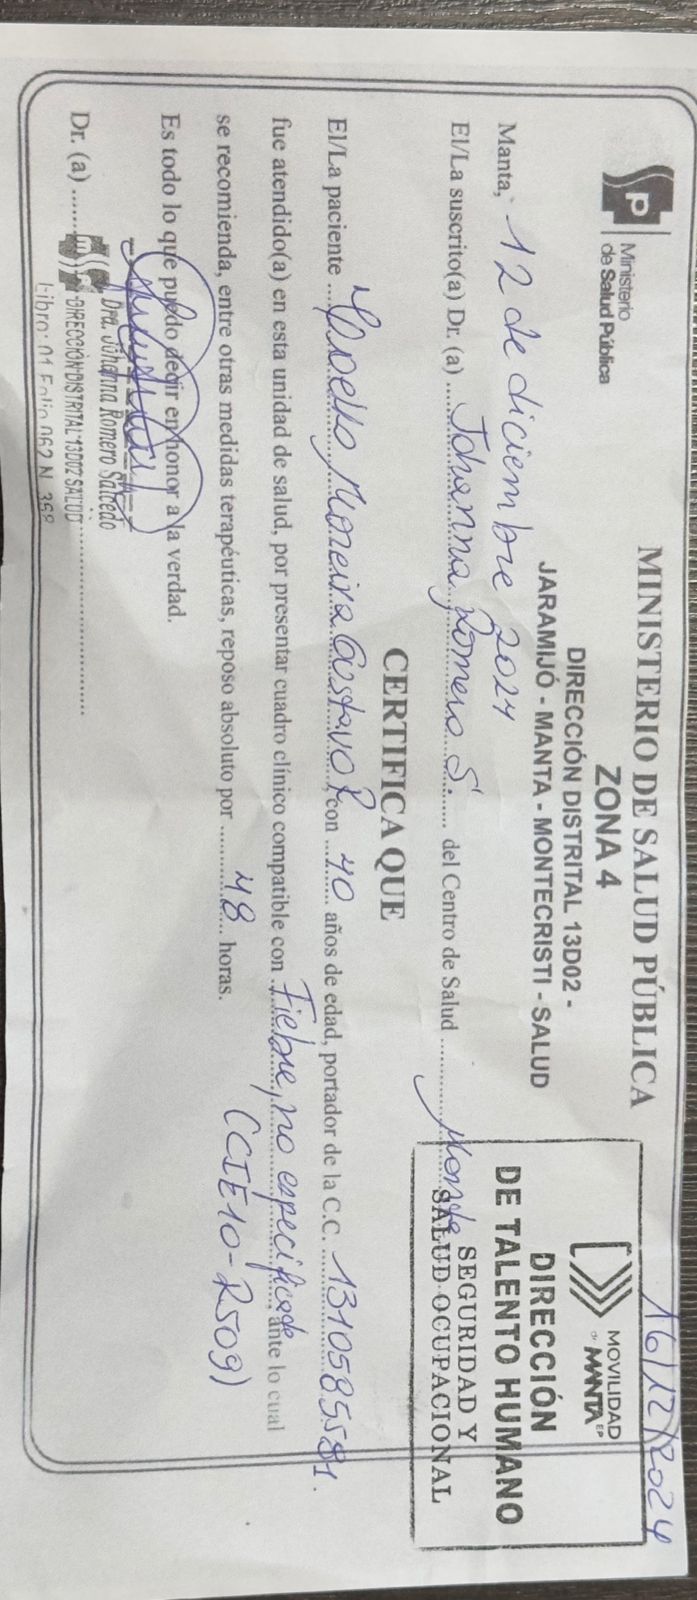 Ministerio
de Salud Pública
MINISTERIO DE SALUD PÚBLICA
ZONA 4
DIRECCIÓN DISTRITAL 13D02 -
JARAMIJÓ - MANTA - MONTECRISTI - SALUD
16/12/2024
MOVILIDAD
de MANTA EP
DIRECCIÓN
DE TALENTO HUMANO
SEGURIDAD Y
SALUD OCUPACIONAL
Manta, 12 de diciembre 2024
El/La suscrito(a) Dr. (a) Johanna Romero S. del Centro de Salud Manta
CERTIFICA QUE
El/La paciente Coello Moreira Gustavo R, con 40 años de edad, portador de la C.C. 1310585581.
fue atendido(a) en esta unidad de salud, por presentar cuadro clínico compatible con Fiebre, no especificada, ante lo cual
se recomienda, entre otras medidas terapéuticas, reposo absoluto por 48 horas. (CIE10-R509)
Es todo lo que puedo decir en honor a la verdad.
Dra. Johanna Romero Salcedo
Dr. (a) DIRECCIÓN DISTRITAL 13D02 SALUD
Libro: 01 Folio 062 N. 368